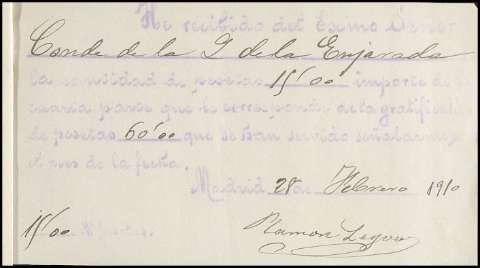 He recibido del Excmo Señor
Conde de la Q de la Enjarada
la cantidad de pesetas 15'00 importe de
cuarta parte que le corresponde de la gratificación
de pesetas 60'00 que se han servido señalarme
el mes de la fecha.
Madrid 28 de Febrero 1910
15'00
Ramon